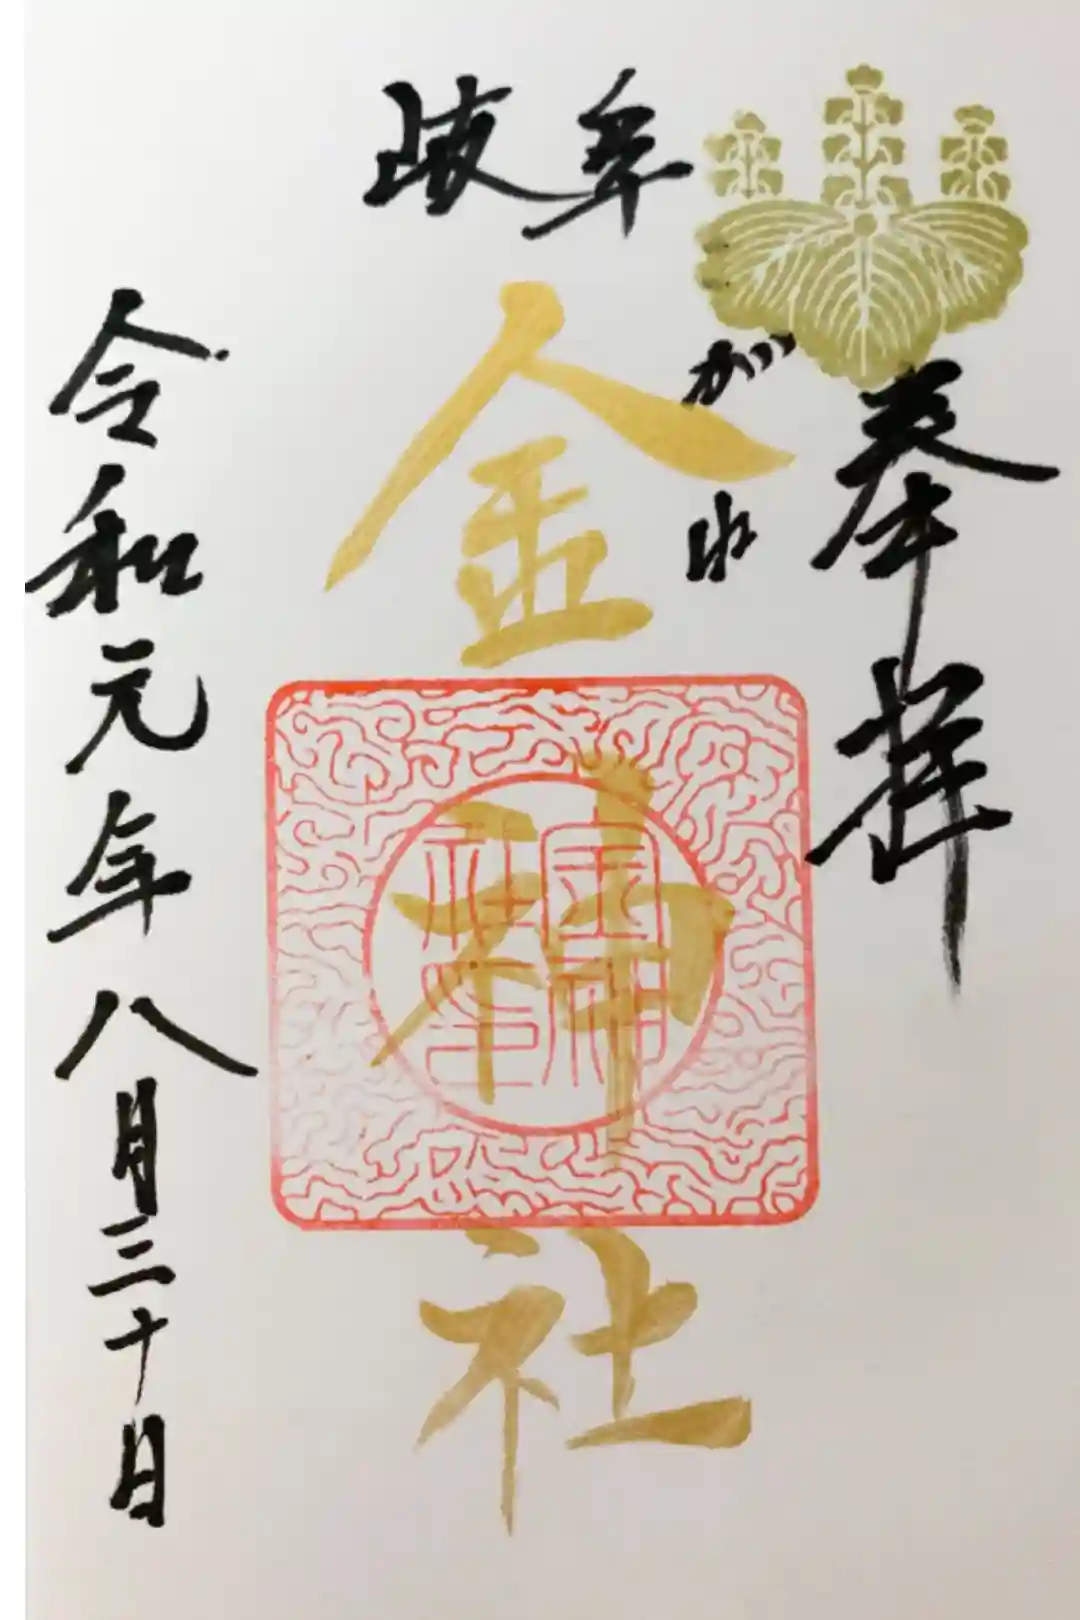 奉拝
岐阜
金神社
こがね
令和元年八月三十日
金神
社印